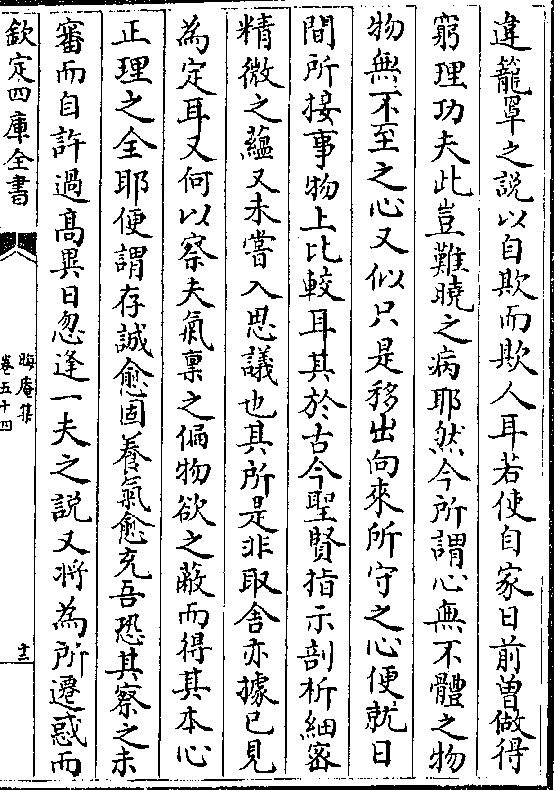 違籠罩之說以自欺而欺人耳若使自家日前曾做得
窮理功夫此豈難曉之病耶然今所謂心無不體之物
物無不至之心又似只是移出向來所守之心便就日
間所接事物上比較耳其於古今聖賢指示剖析細密
精微之蘊又未嘗入思議也其所是非取舍亦據已見
為定耳又何以察夫氣稟之偏物欲之蔽而得其本心
正理之全耶便謂存誠愈固養氣愈充吾恐其察之未
審而自許過高異日忽逢一夫之說又將為所遷惑而
欽定四庫全書
晦庵集
卷五十四
十三